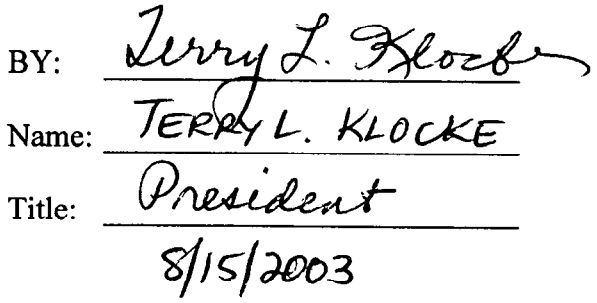 BY: Terry L. Klocke
Name: TERRY L. KLOCKE
Title: President
8/15/2003